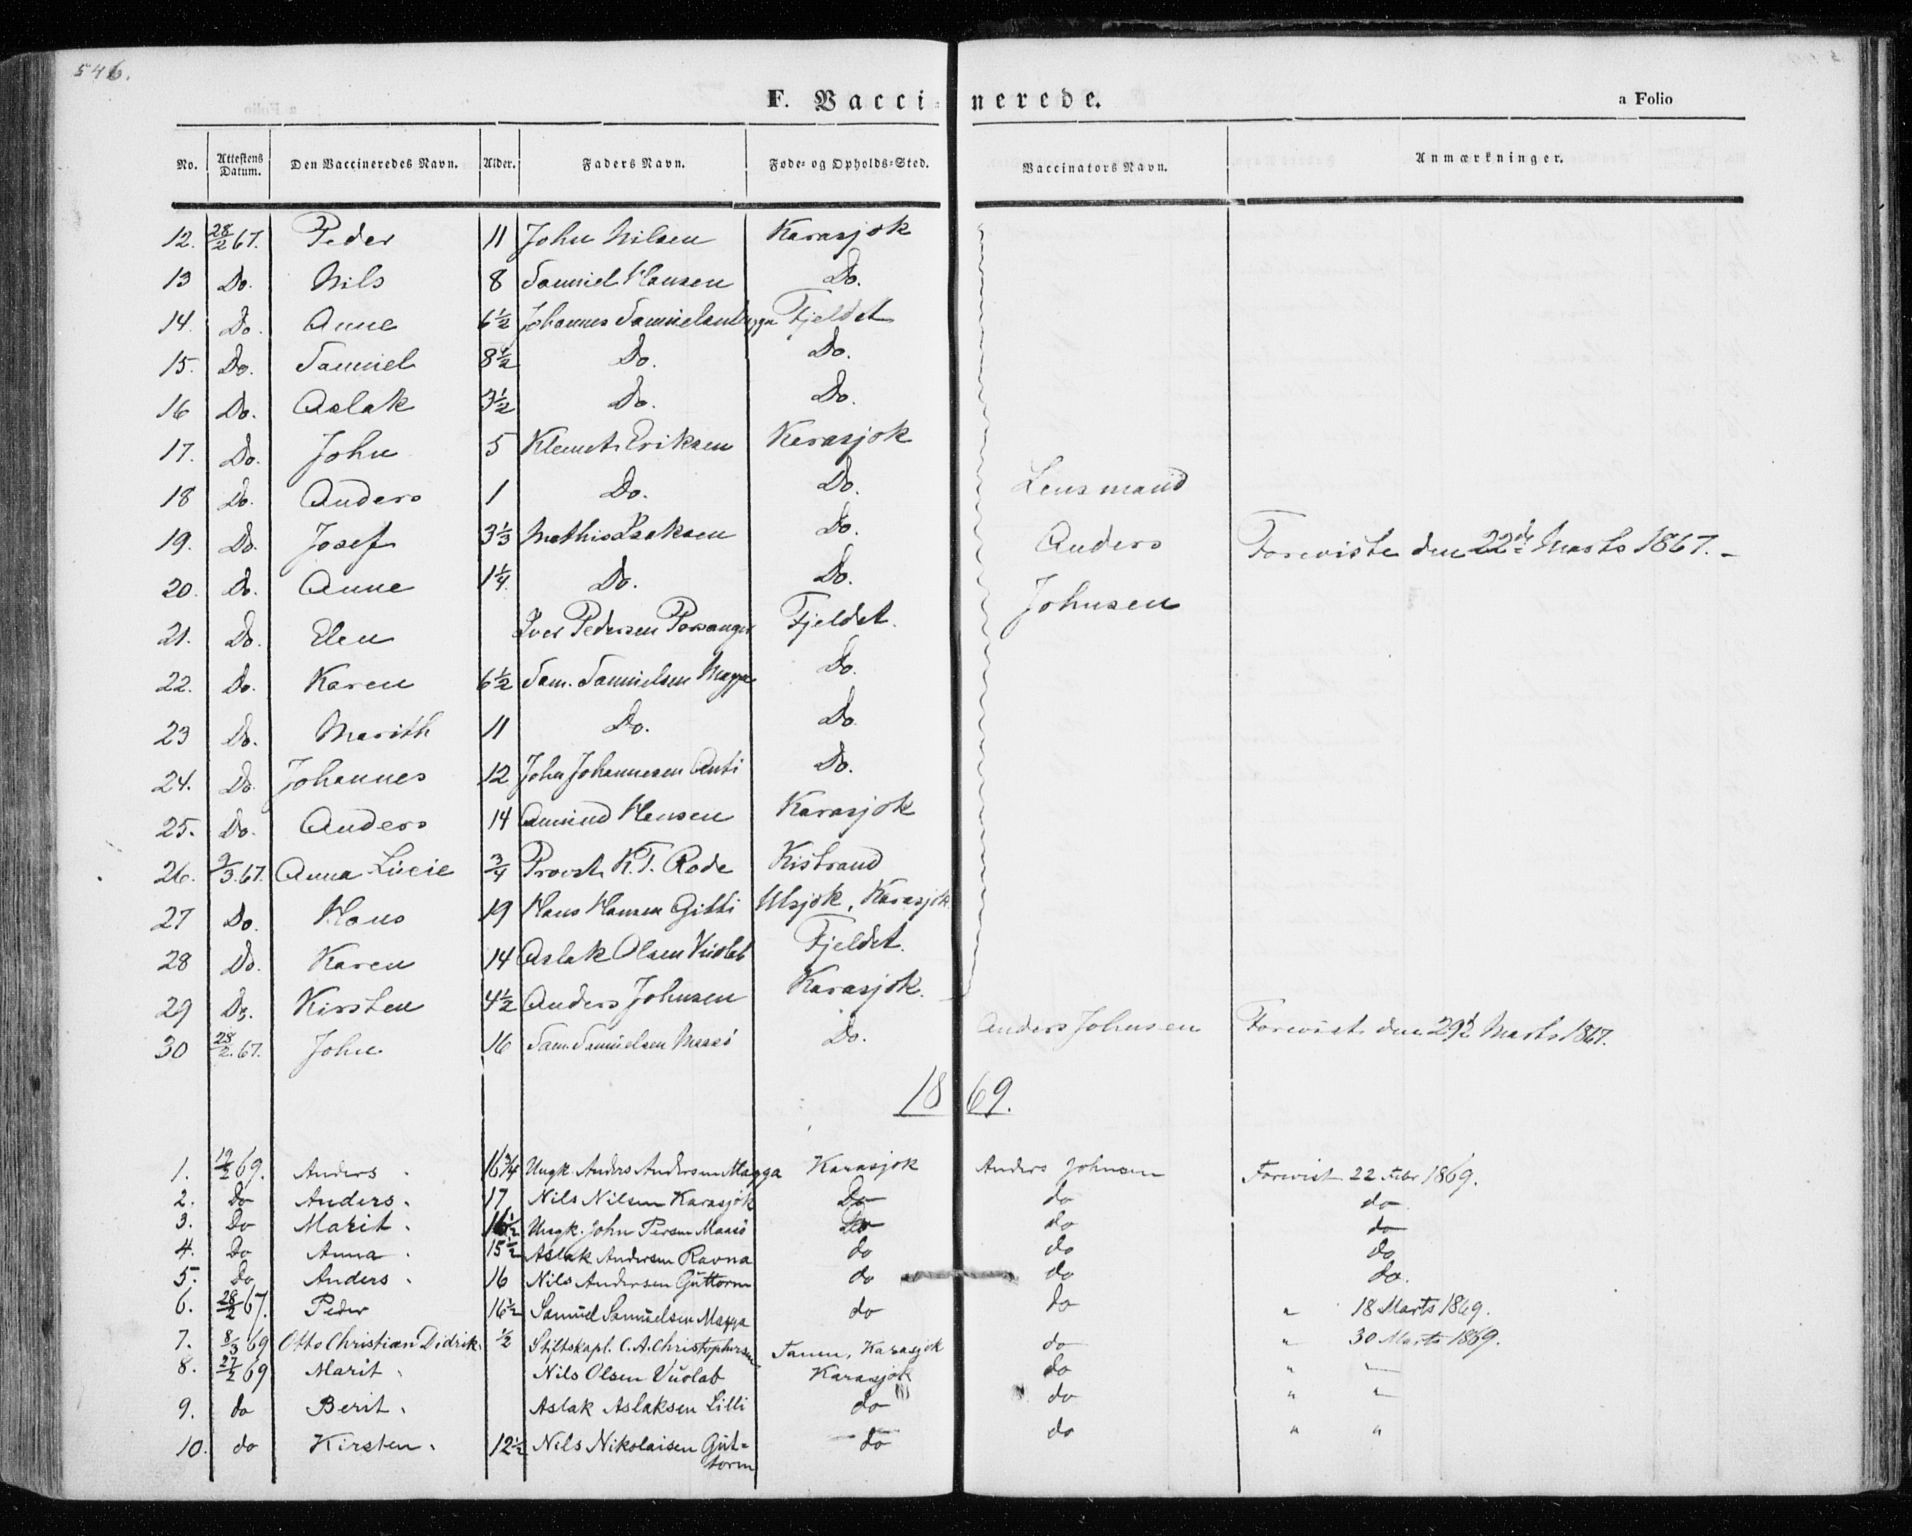 546.
F. Vaccinerede.
a Folio
No. | Attestens Datum. | Den Vaccineredes Navn. | Alder. | Faders Navn. | Føde- og Opholds-Sted. | Vaccinators Navn. | Anmærkninger.
12. | 28/2 67. | Peder | 11 | John Nilsen | Karasjok
13 | Do. | Nils | 8 | Samuel Hansen | Do.
14. | Do. | Anne | 6½ | Johannes Samuelsen Magga | Fjeldet
15. | Do. | Samuel | 8½ | Do. | Do.
16 | Do. | Aslak | 3½ | Do. | Do.
17. | Do. | John | 5 | Klemet Eriksen | Karasjok
18 | Do. | Anders | 1 | Do. | Do. | Lensmand
19. | Do. | Josef | 3⅓ | Mathis Isaksen | Do. | Anders | Foreviste den 22de Marts 1867. –
20. | Do. | Anne | 1¼ | Do. | Do. | Johnsen
21. | Do. | Elen | | Iver Pedersen Porsanger | Fjeldet.
22. | Do. | Karen | 6½ | Sam. Samuelsen Magga | Do.
23 | Do. | Marith | 11 | Do. | Do.
24. | Do. | Johannes | 12 | John Johannesen Anti | Do.
25. | Do. | Anders | 14 | Amund Hansen | Karasjok
26. | 9/3 67. | Anna Lucie | ¾ | Provst K. F. Rode | Kistrand
27 | Do. | Hans | 19 | Hans Hansen Gitti | Utsjok, Karasjok
28 | Do. | Karen | 14 | Aslak Olsen Vuolab | Fjeldet.
29 | Do. | Kirsten | 4½ | Anders Johnsen | Karasjok.
30 | 28/2 67. | John | 16 | Sam. Samuelsen Maasø | Do. | Anders Johnsen | Forevist den 29de Marts 1867.
1869.
1. | 19/2 69. | Anders | 16¾ | Ungk. Anders Andersen Magga | Karasjok | Anders Johnsen | Forevist 22 Febr 1869.
2. | Do | Anders. | 17 | Nils Nilsen Karasjok | Do | do | do.
3. | Do | Marit. | 16½ | Ungk. John Persen Maasø | Do | do | do
4. | Do | Anna. | 15½ | Aslak Andersen Ravna | do | do | do
5. | Do | Anders. | 16 | Nils Andersen Guttorm | do | do | do.
6. | 28/2 67. | Peder | 16½ | Samuel Samuelsen Magga | do | do | " 18 Marts 1869.
7. | 8/3 69 | Otto Christian Didrik. | ½ | Stiftskapl. C. A. Christophersen | Tanen, Karasjok | do | " 30 Marts 1869.
8. | 27/2 69 | Marit. | | Nils Olsen Vuolab | Karasjok | do | " "
9. | do | Berit. | | Aslak Aslaksen Lilli | do | do | " "
10. | do | Kirsten. | 12½ | Nils Nikolaisen Gut=
torm | do | do | " "